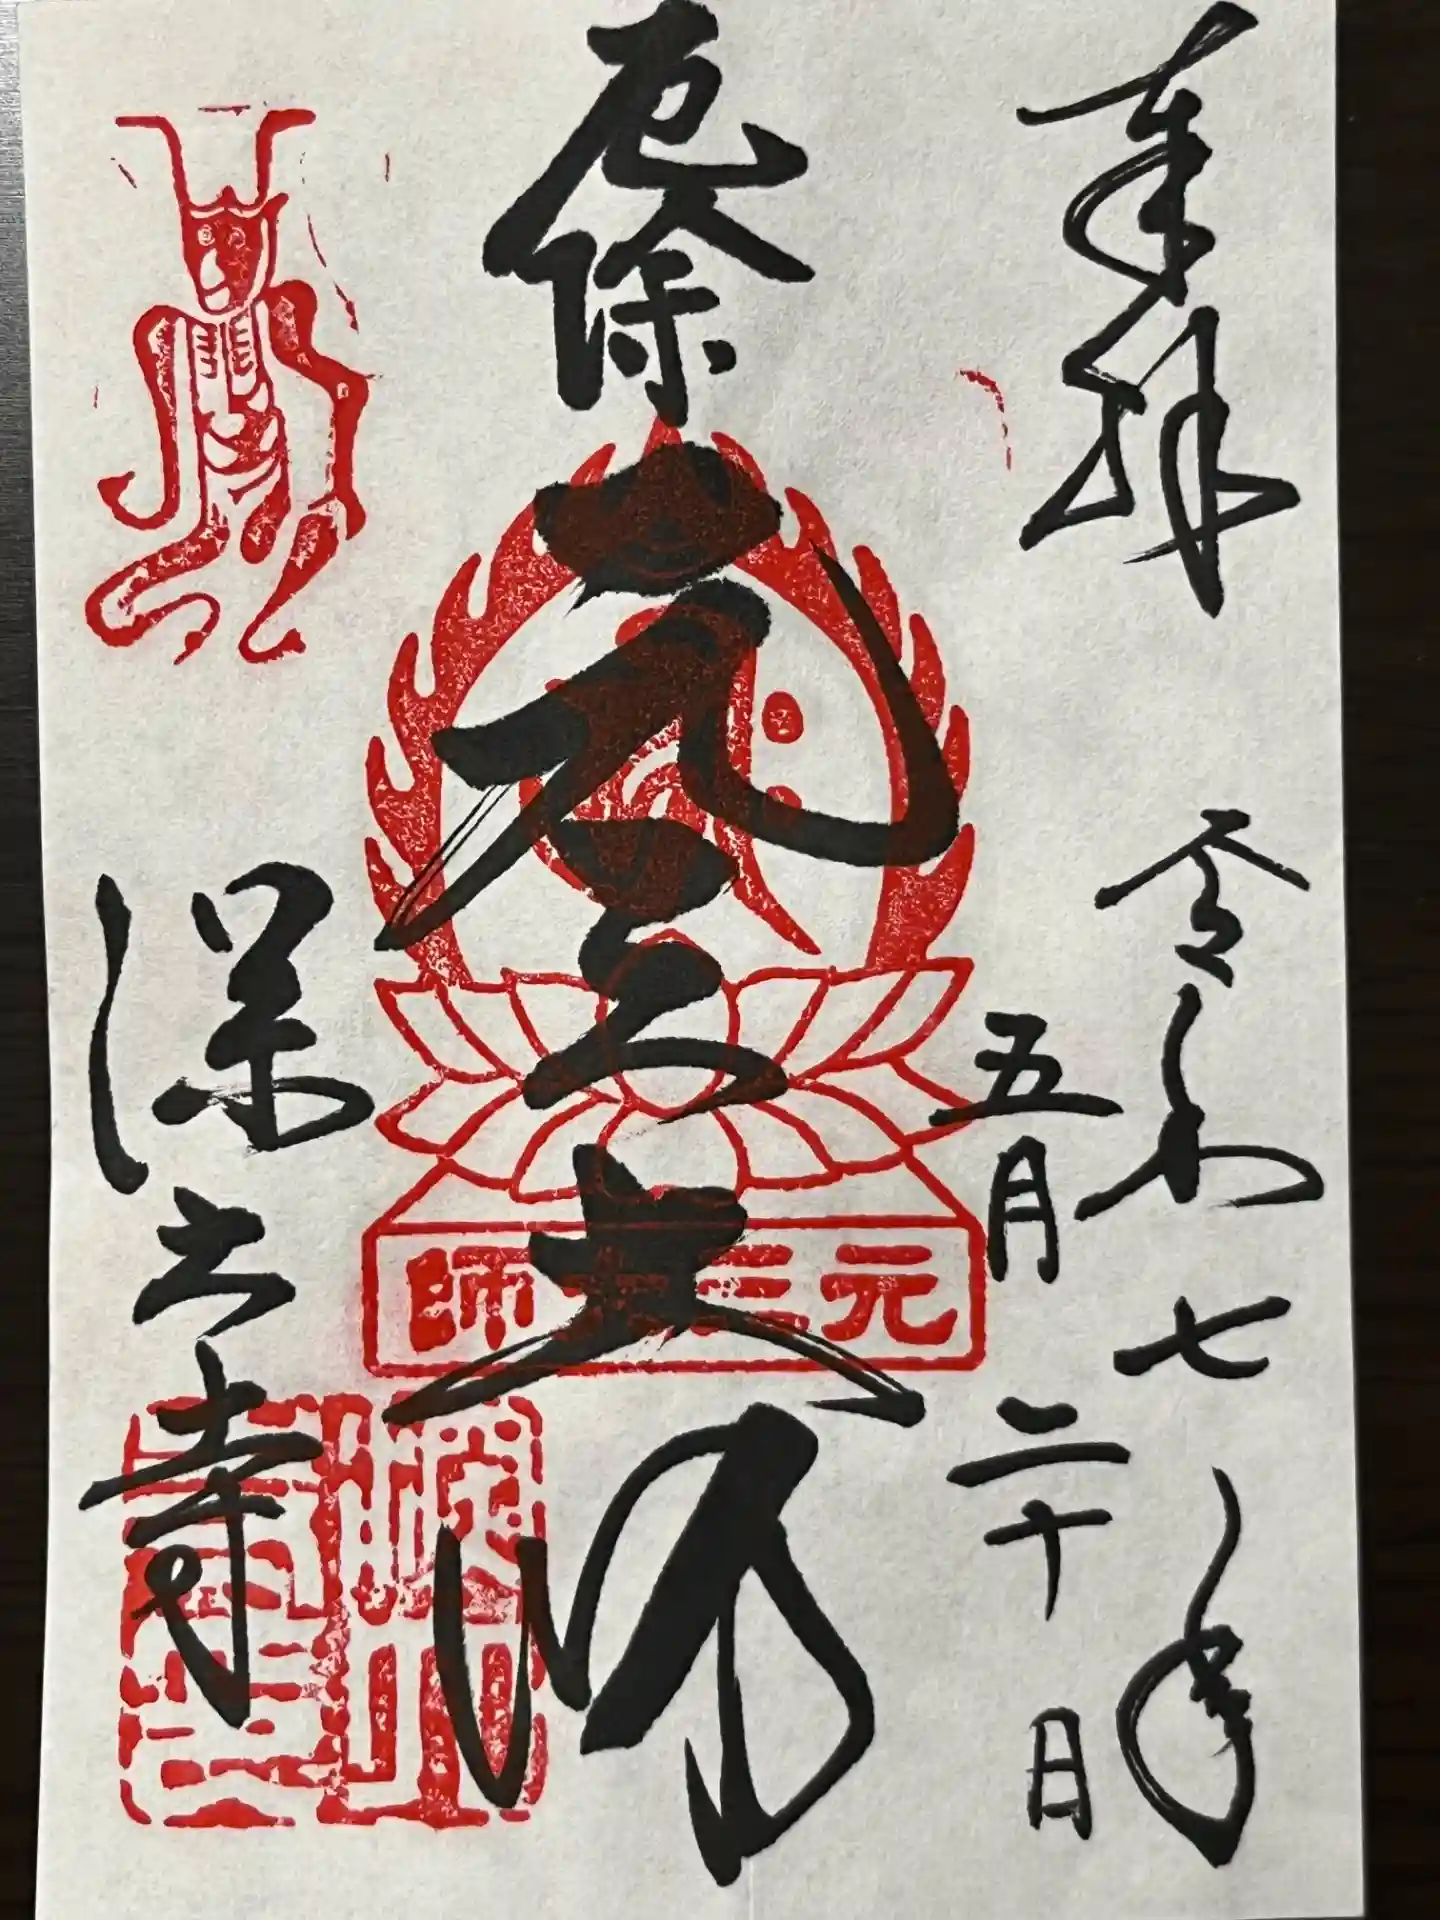 奉拝
令和七年
五月二十日
厄除
元三大師
元三大師
深大寺